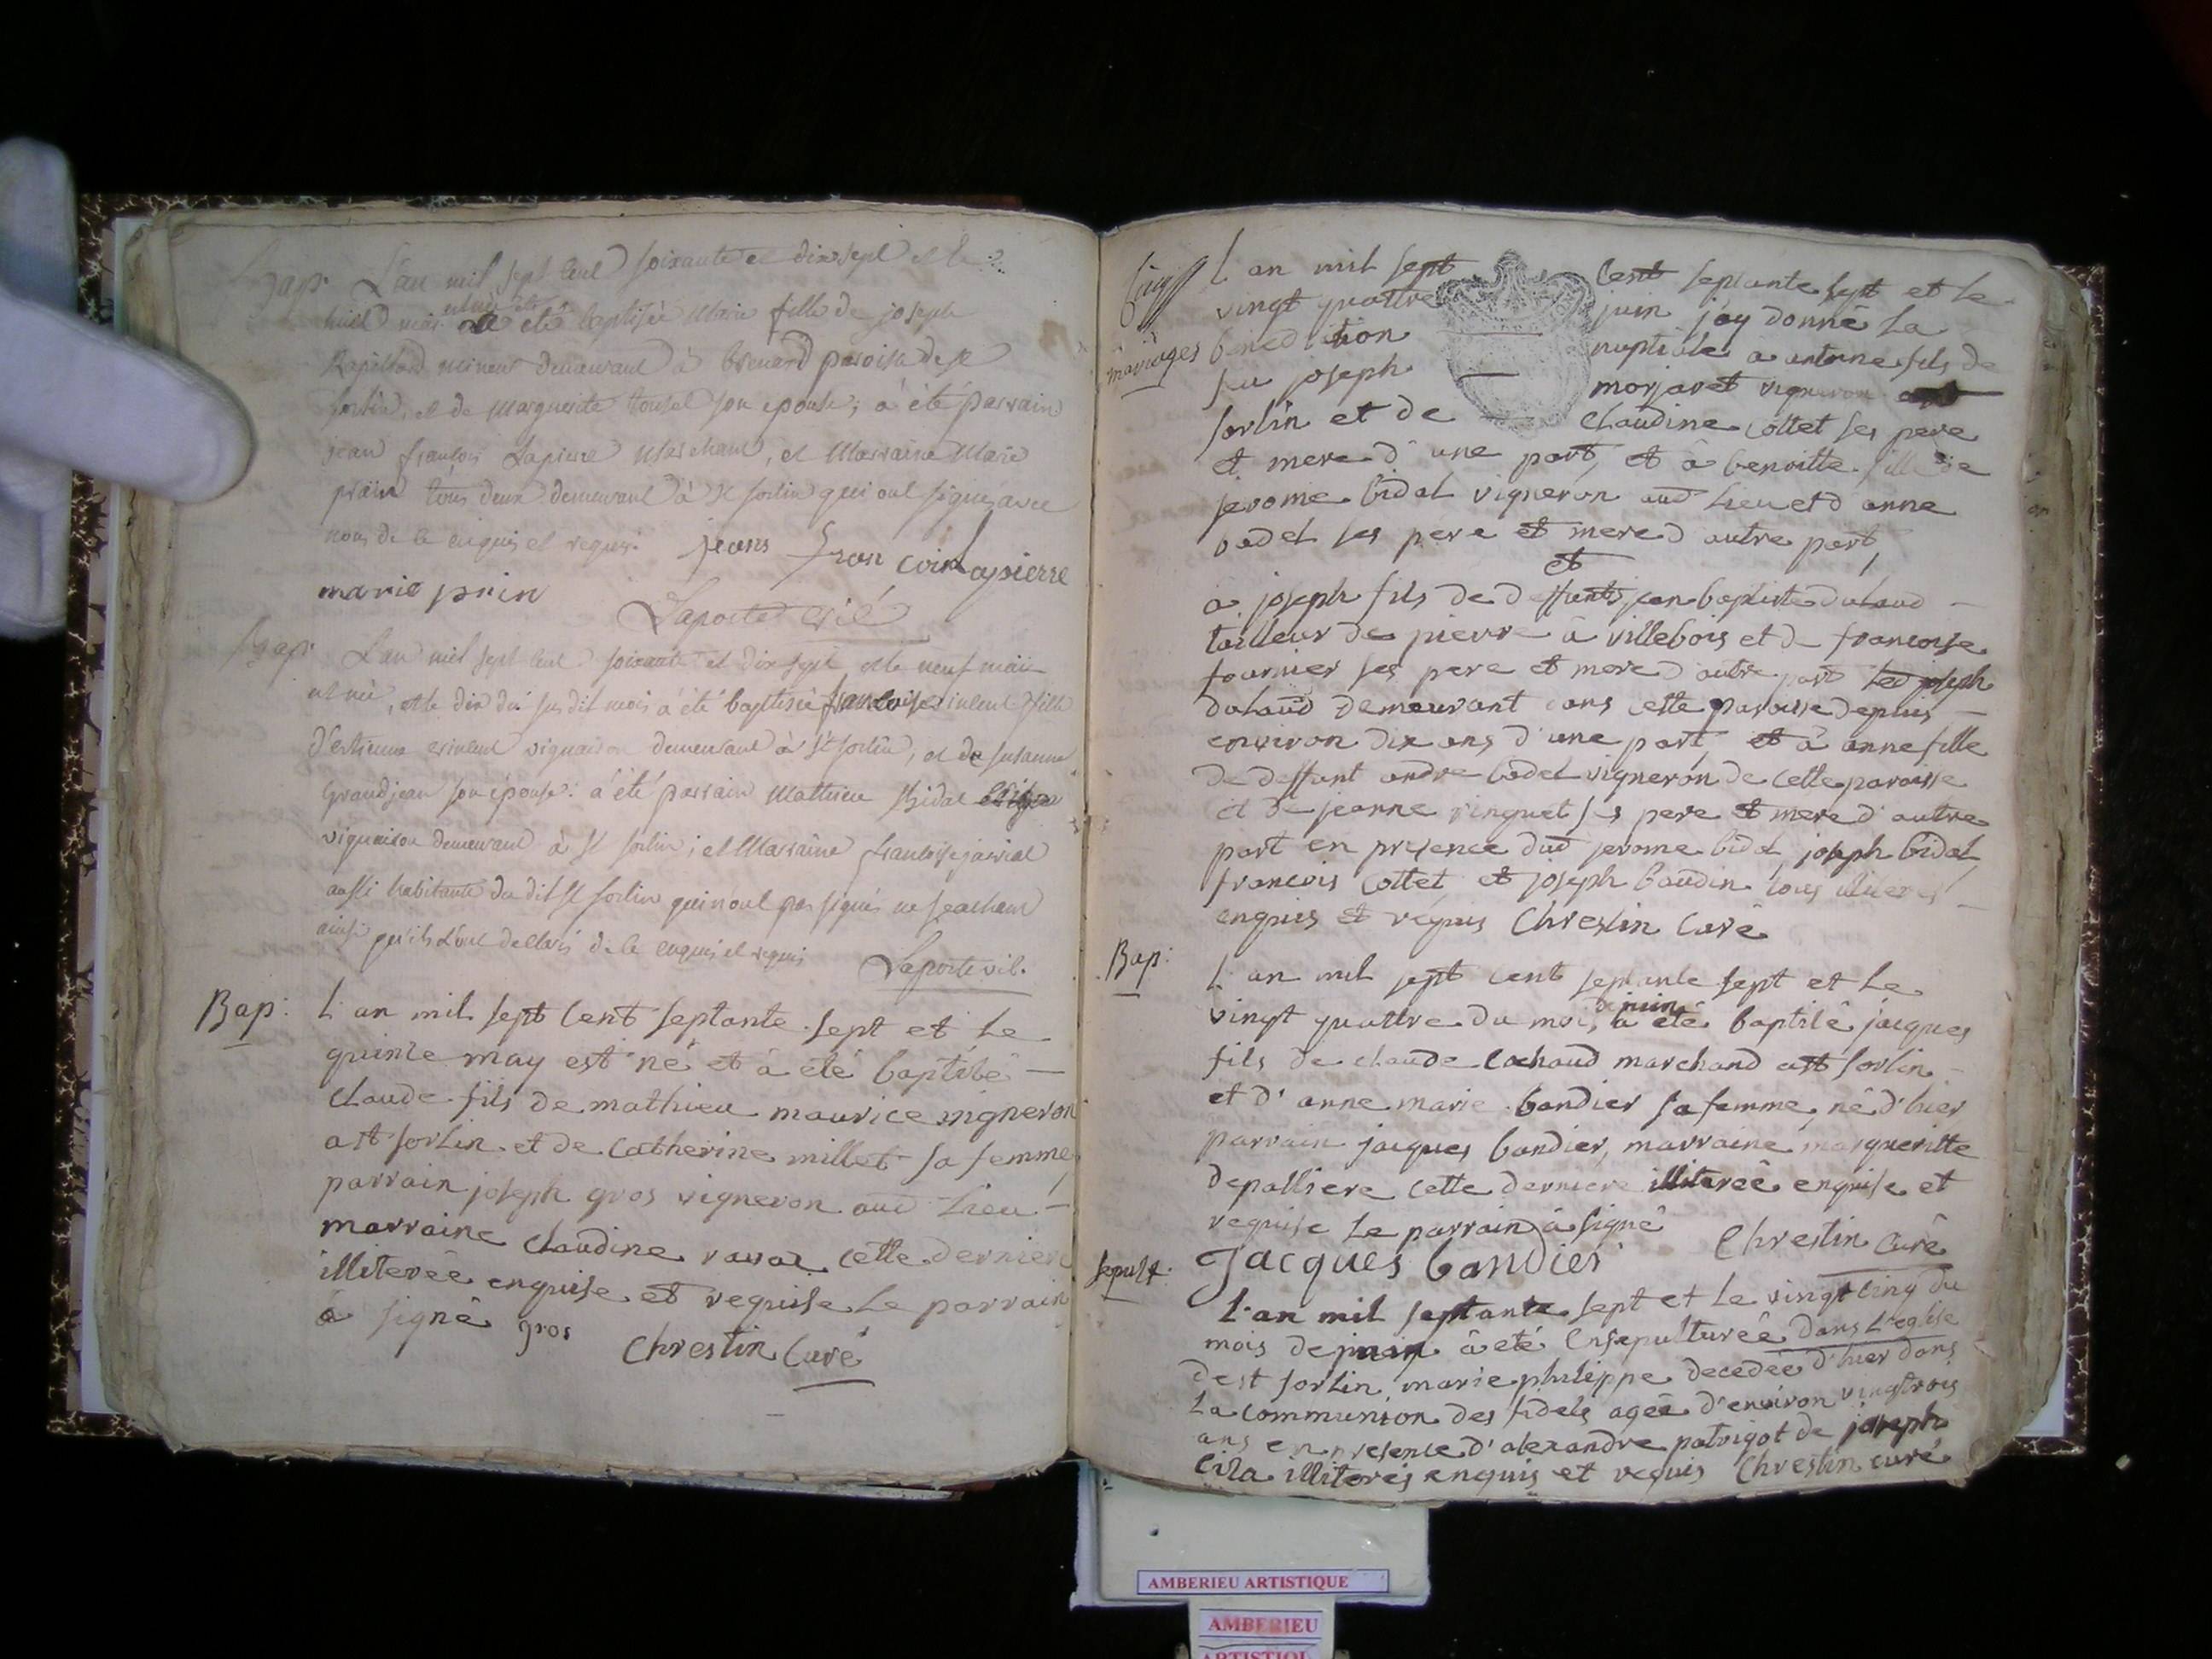 Bap: L'an mil sept cent soixante et dix sept et le
huit mai est né et a été baptisée Marie fille de joseph
mineur demeurant à brenard paroisse de st
sorlin, et de Marguerite tousel son epouse; à été parrain
jean francois Lapierre Marchant, et Marraine Marie
prain tous deux demeurant à St sorlin qui ont signés avec
nous de ce enquis et requis. jeans fran coirLapierre
marie prin Laporte vic
Bap: L'an mil sept cent soixante et dix sept et le neuf mai
est né, et le dix du susdit mois à été baptisée francoise fille
d'estienne vigneron demeurant à St sorlin, et de susanne
Grandjean son épouse: à été parrain Mathieu Bidal
vigneron demeurant à St sorlin; et Marraine francoise
aussi habitante du dit St sorlin qui n'ont pas signés ne scachant
ainsi qu'ils l'ont declaré de ce enquis et requis Laporte vic.
Bap: L'an mil sept cent septante sept et le
quinze may est né et à été baptisé
claude fils de mathieu maurice vigneron
a st sorlin et de catherine millet sa femme
parrain joseph gros vigneron aud Lieu
marraine claudine cette derniere
illiterée enquise et requise le parrain
à signé gros Chrestin Curé
L'an mil sept cent septante sept et le
mariages vingt quattre juin j'ay donné la
benediction nuptiale a antoine fils de
feu joseph morjaret vigneron a st
sorlin et de claudine cottet ses pere
et mere d'une part, et à benoitte fille de
jerome bidal vigneron aud Lieu et d'anne
badel ses pere et mere d'autre part,
et
à joseph fils de deffunt jean baptiste dulaud
tailleur de pierre à villebois et de francoise
fournier ses pere et mere d'autre part led joseph
dulaud demeurant dans cette paroisse depuis
environ dix ans d'une part, et à anne fille
de deffunt andre badel vigneron de cette paroisse
et de jeanne ses pere et mere d'autre
part en presence dud jerome bidal, joseph bidal,
francois cottet et joseph baudin tous illiterés
enquis et requis Chrestin Curé
Bap: L'an mil sept cent septante sept et le
vingt quattre du mois de juin à été baptisé jacques
fils de claude cochaud marchand a st sorlin
et d'anne marie bandier sa femme, né d'hier
parrain jacques bandier, marraine margueritte
depalliere cette derniere illiterée enquise et
requise le parrain à signé Chrestin Curé
Jacques bandier
Sepult: L'an mil septante sept et le vingt cinq du
mois de juin à été ensepulturée dans L'eglise
de st sorlin marie philippe decedée d'hier dans
la communion des fidels agée d'environ vingtrois
ans en presence d'alexandre patrigot de joseph
cila illiterés enquis et requis Chrestin curé
AMBERIEU ARTISTIQUE
AMBERIEU
ARTISTIQUE